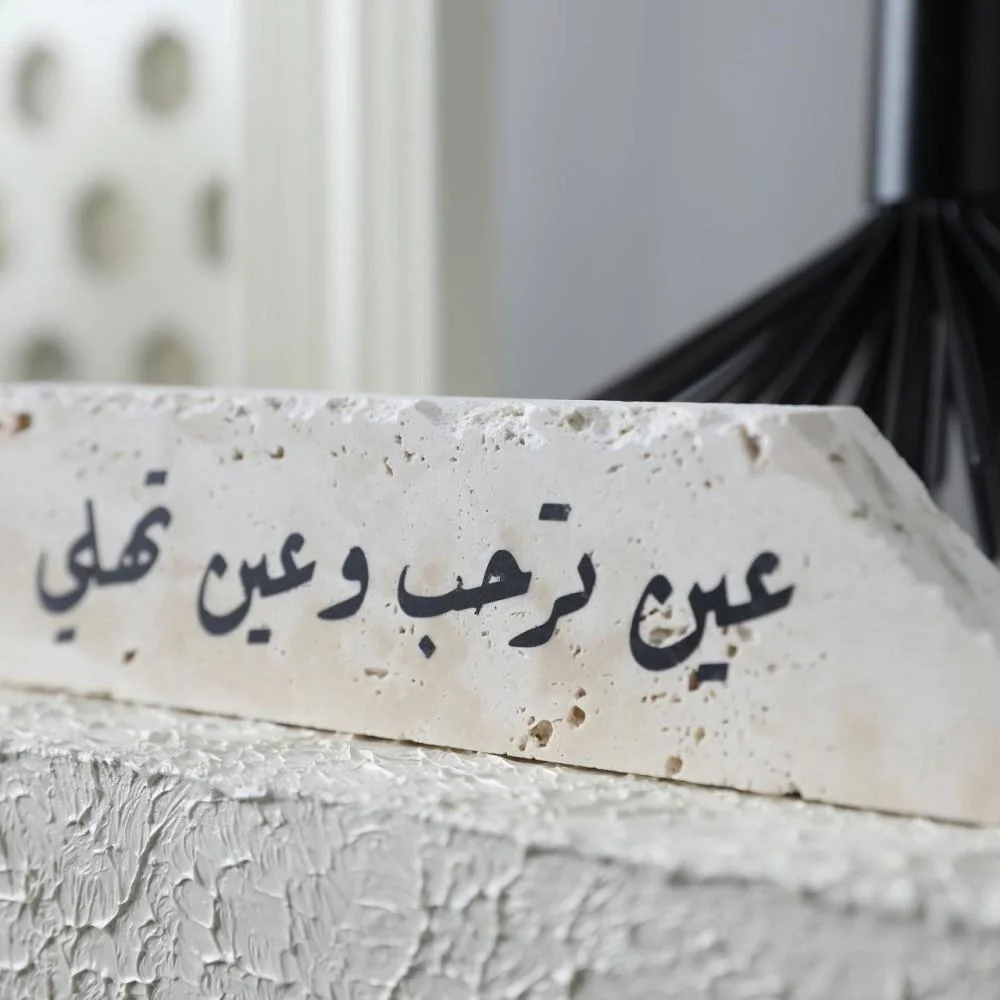 عين ترحب وعين تهلي